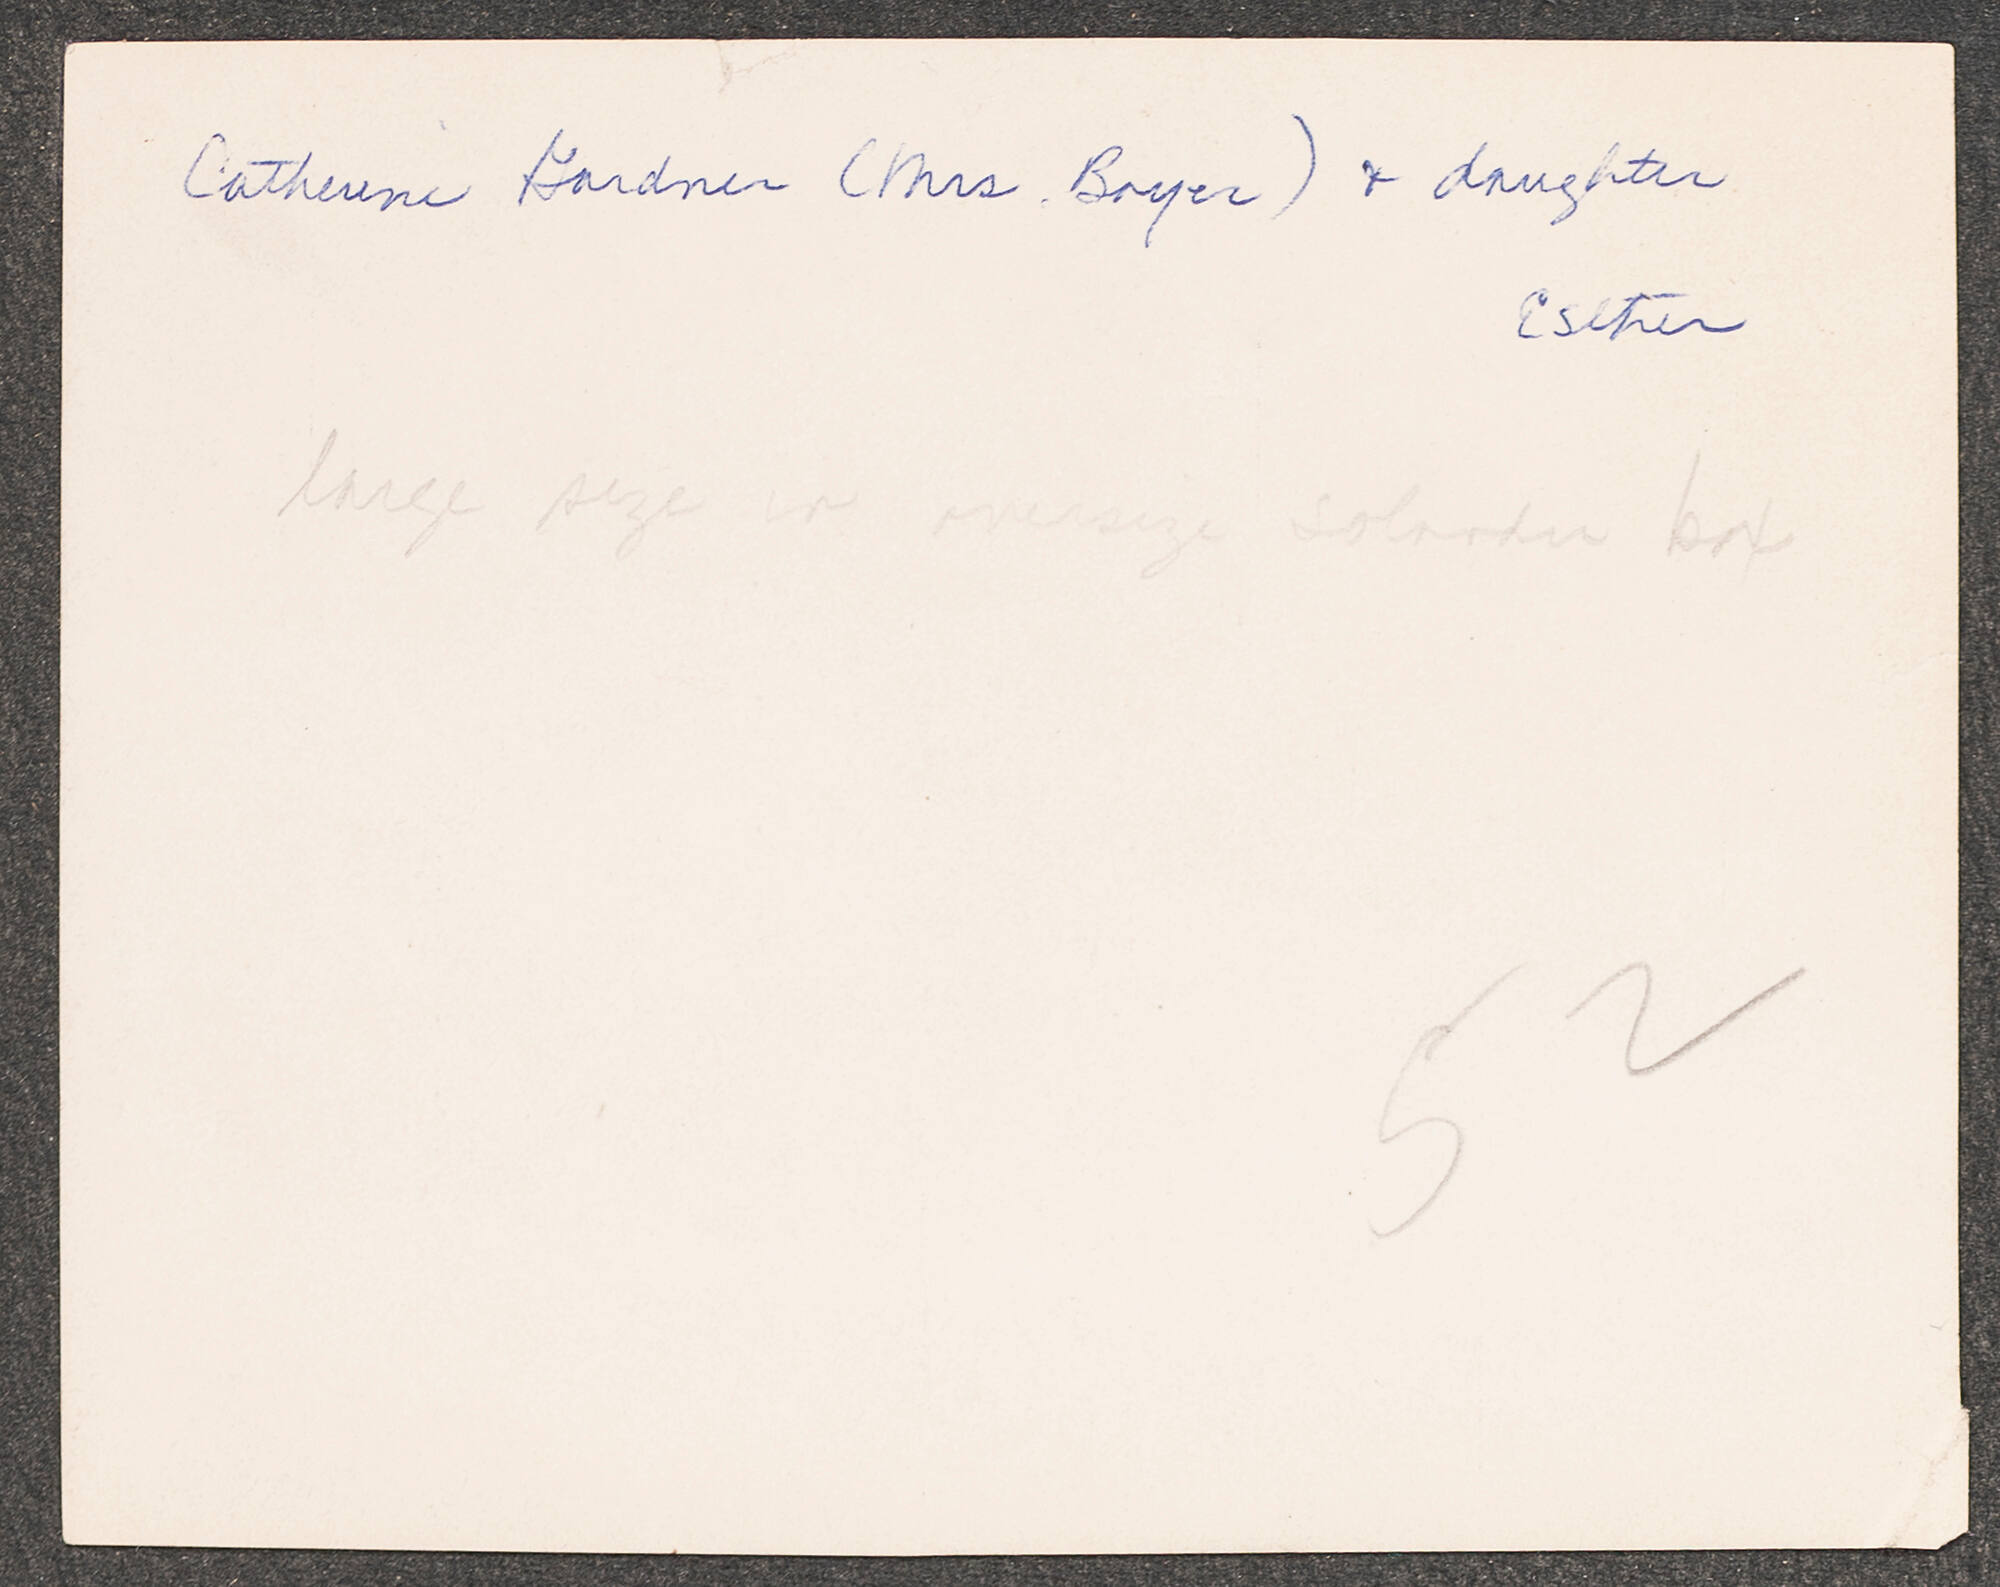 Catherine Gardner (Mrs. Boyer) & daughter
Esther
large size in oversize solander box
52